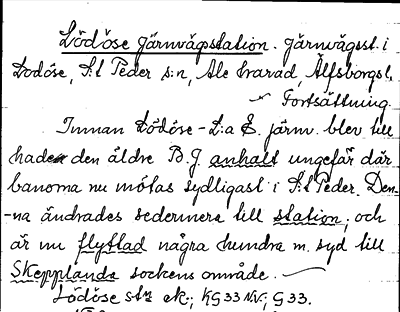 Lödöse Järnvägsstation. Järnvägsst. i
Lödöse, S:t Peder s:n, Ale härad, Älfsborgs l.
Fortsättning
Innan Lödöse - L:a E. järnv. blev till
hade den äldre B.J. anhalt ungefär där
banorna nu mötas sydligast i S:t Peder. Den-
-na ändrades sedermera till station, och
är nu flyttad några hundra m. syd till
Skepplanda sockens område.
Lödöse stn ek.; KG33NV; G33.